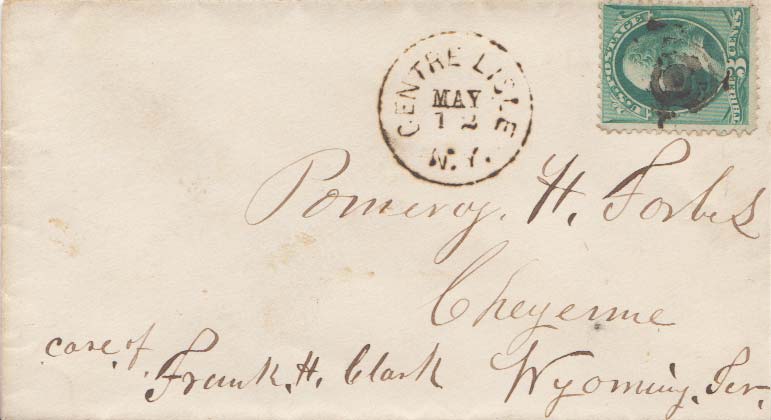 CENTRE LISLE
MAY
12
N.Y.
U.S. POSTAGE
Pomeroy. H. Forbes
Cheyenne
care of.
Frank. H. Clark Wyoming. Ter.